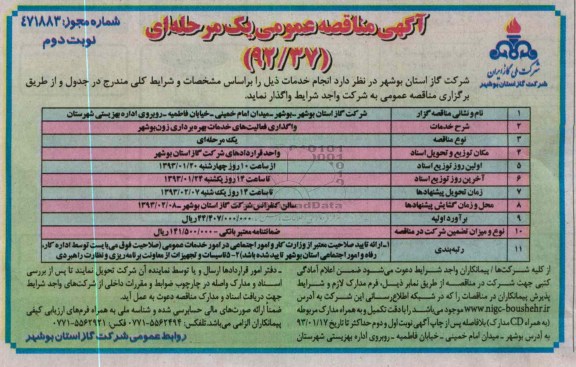 آگهی مناقصه عمومی یک مرحله‌ای
(۹۲/۳۷)
شماره مجوز: ۴۷۱۸۸۳
نوبت دوم
شرکت ملی گاز ایران
شرکت گاز استان بوشهر
شرکت گاز استان بوشهر در نظر دارد انجام خدمات ذیل را براساس مشخصات و شرایط کلی مندرج در جدول و از طریق
برگزاری مناقصه عمومی به شرکت واجد شرایط واگذار نماید.
۱ نام و نشانی مناقصه گزار شرکت گاز استان بوشهر ـ بوشهر ـ میدان امام خمینی ـ خیابان فاطمیه ـ روبروی اداره بهزیستی شهرستان
۲ شرح خدمات واگذاری فعالیت‌های خدمات بهره برداری زون بوشهر
۳ نوع مناقصه یک مرحله‌ای
۴ مکان توزیع و تحویل اسناد واحد قراردادهای شرکت گاز استان بوشهر
۵ اولین روز توزیع اسناد از ساعت ۱۰ روز چهارشنبه ۱۳۹۳/۰۱/۲۰
۶ آخرین روز توزیع اسناد تا ساعت ۱۲ روز یکشنبه ۱۳۹۳/۰۱/۲۴
۷ زمان تحویل پیشنهادها تا ساعت ۱۴ روز یک شنبه ۱۳۹۳/۰۲/۰۷
۸ محل و زمان گشایش پیشنهادها سالن کنفرانس شرکت گاز استان بوشهر ـ ۱۳۹۳/۰۲/۰۸
۹ برآورد اولیه ۴۴/۴۰۷/۰۰۰/۰۰۰ ریال
۱۰ نوع و میزان تضمین شرکت در مناقصه ضمانتنامه معتبر بانکی ۱۴۱/۵۰۰/۰۰۰ ریال
۱۱ رتبه‌بندی ۱ـ ارائه تایید صلاحیت معتبر از وزارت کار و امور اجتماعی در امور خدمات عمومی (صلاحیت فوق می‌بایست توسط اداره کار،
رفاه و امور اجتماعی استان بوشهر تایید شده باشد) ۲ـ تاسیسات و تجهیزات از معاونت برنامه‌ریزی و نظارت راهبردی
از کلیه شرکت‌ها / پیمانکاران واجد شرایط دعوت می‌شود ضمن اعلام آمادگی
کتبی جهت شرکت در مناقصه از طریق نمابر ذیل، فرم مدارک لازم و شرایط
پذیرش پیمانکاران در مناقصات را که در شبکه اطلاع‌رسانی این شرکت به آدرس
www.nigc-boushehr.ir موجود می‌باشد را بادقت تکمیل و به همراه مدارک مربوطه
(به همراه CD مدارک) بلافاصله پس از چاپ آگهی نوبت اول و دوم حداکثر تا تاریخ ۹۳/۰۱/۱۷
به آدرس بوشهر ـ میدان امام خمینی ـ خیابان فاطمیه ـ روبروی اداره بهزیستی شهرستان
ـ دفتر امور قراردادها ارسال و یا توسط نماینده آن شرکت تحویل نمایند تا پس از بررسی
اسناد و مدارک واصله در چارچوب ضوابط و مقررات داخلی از شرکت‌های واجد شرایط
جهت دریافت اسناد و مدارک مناقصه دعوت به عمل آید.
ضمناً ارائه صورت‌های مالی حسابرسی شده و شناسه ملی به همراه فرم‌های ارزیابی کیفی
پیمانکاران الزامی می‌باشد. تلفکس: ۵۵۶۲۴۹۴-۰۷۷۱ فکس: ۵۵۶۲۹۲۱-۰۷۷۱
روابط عمومی شرکت گاز استان بوشهر